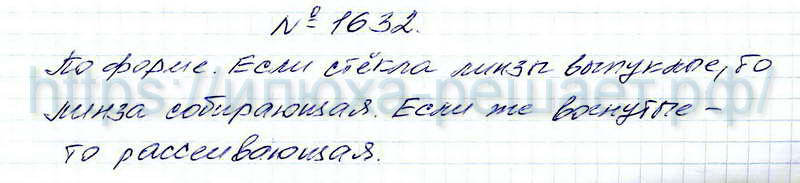 № 1632.
По форме. Если стёкла линзы выпуклые, то
https://илюха-решает.рф/
линза собирающая. Если же вогнутые –
то рассеивающая.